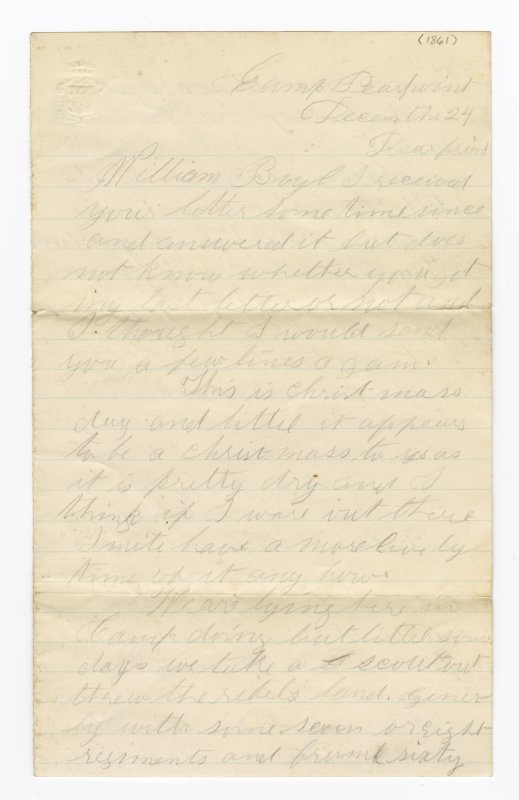 (1861)
Camp Pearpoint
Decem the 24
Dear friend
William Boyd I received
your letter some time since
and answered it but does
not know whether you got
my last letter or not and
I thought I would send
you a few lines again.
This is christ mass
day and little it appears
to be a christ mass to us as
it is pretty dry and I
think if I ware out there
I mite have a more live ly
time of it any how.
We are lying here in
Camp doing but little some
days we take a scout out
threw the rebels land. Gener
ly with some seven or eight
regiments and frume sixty